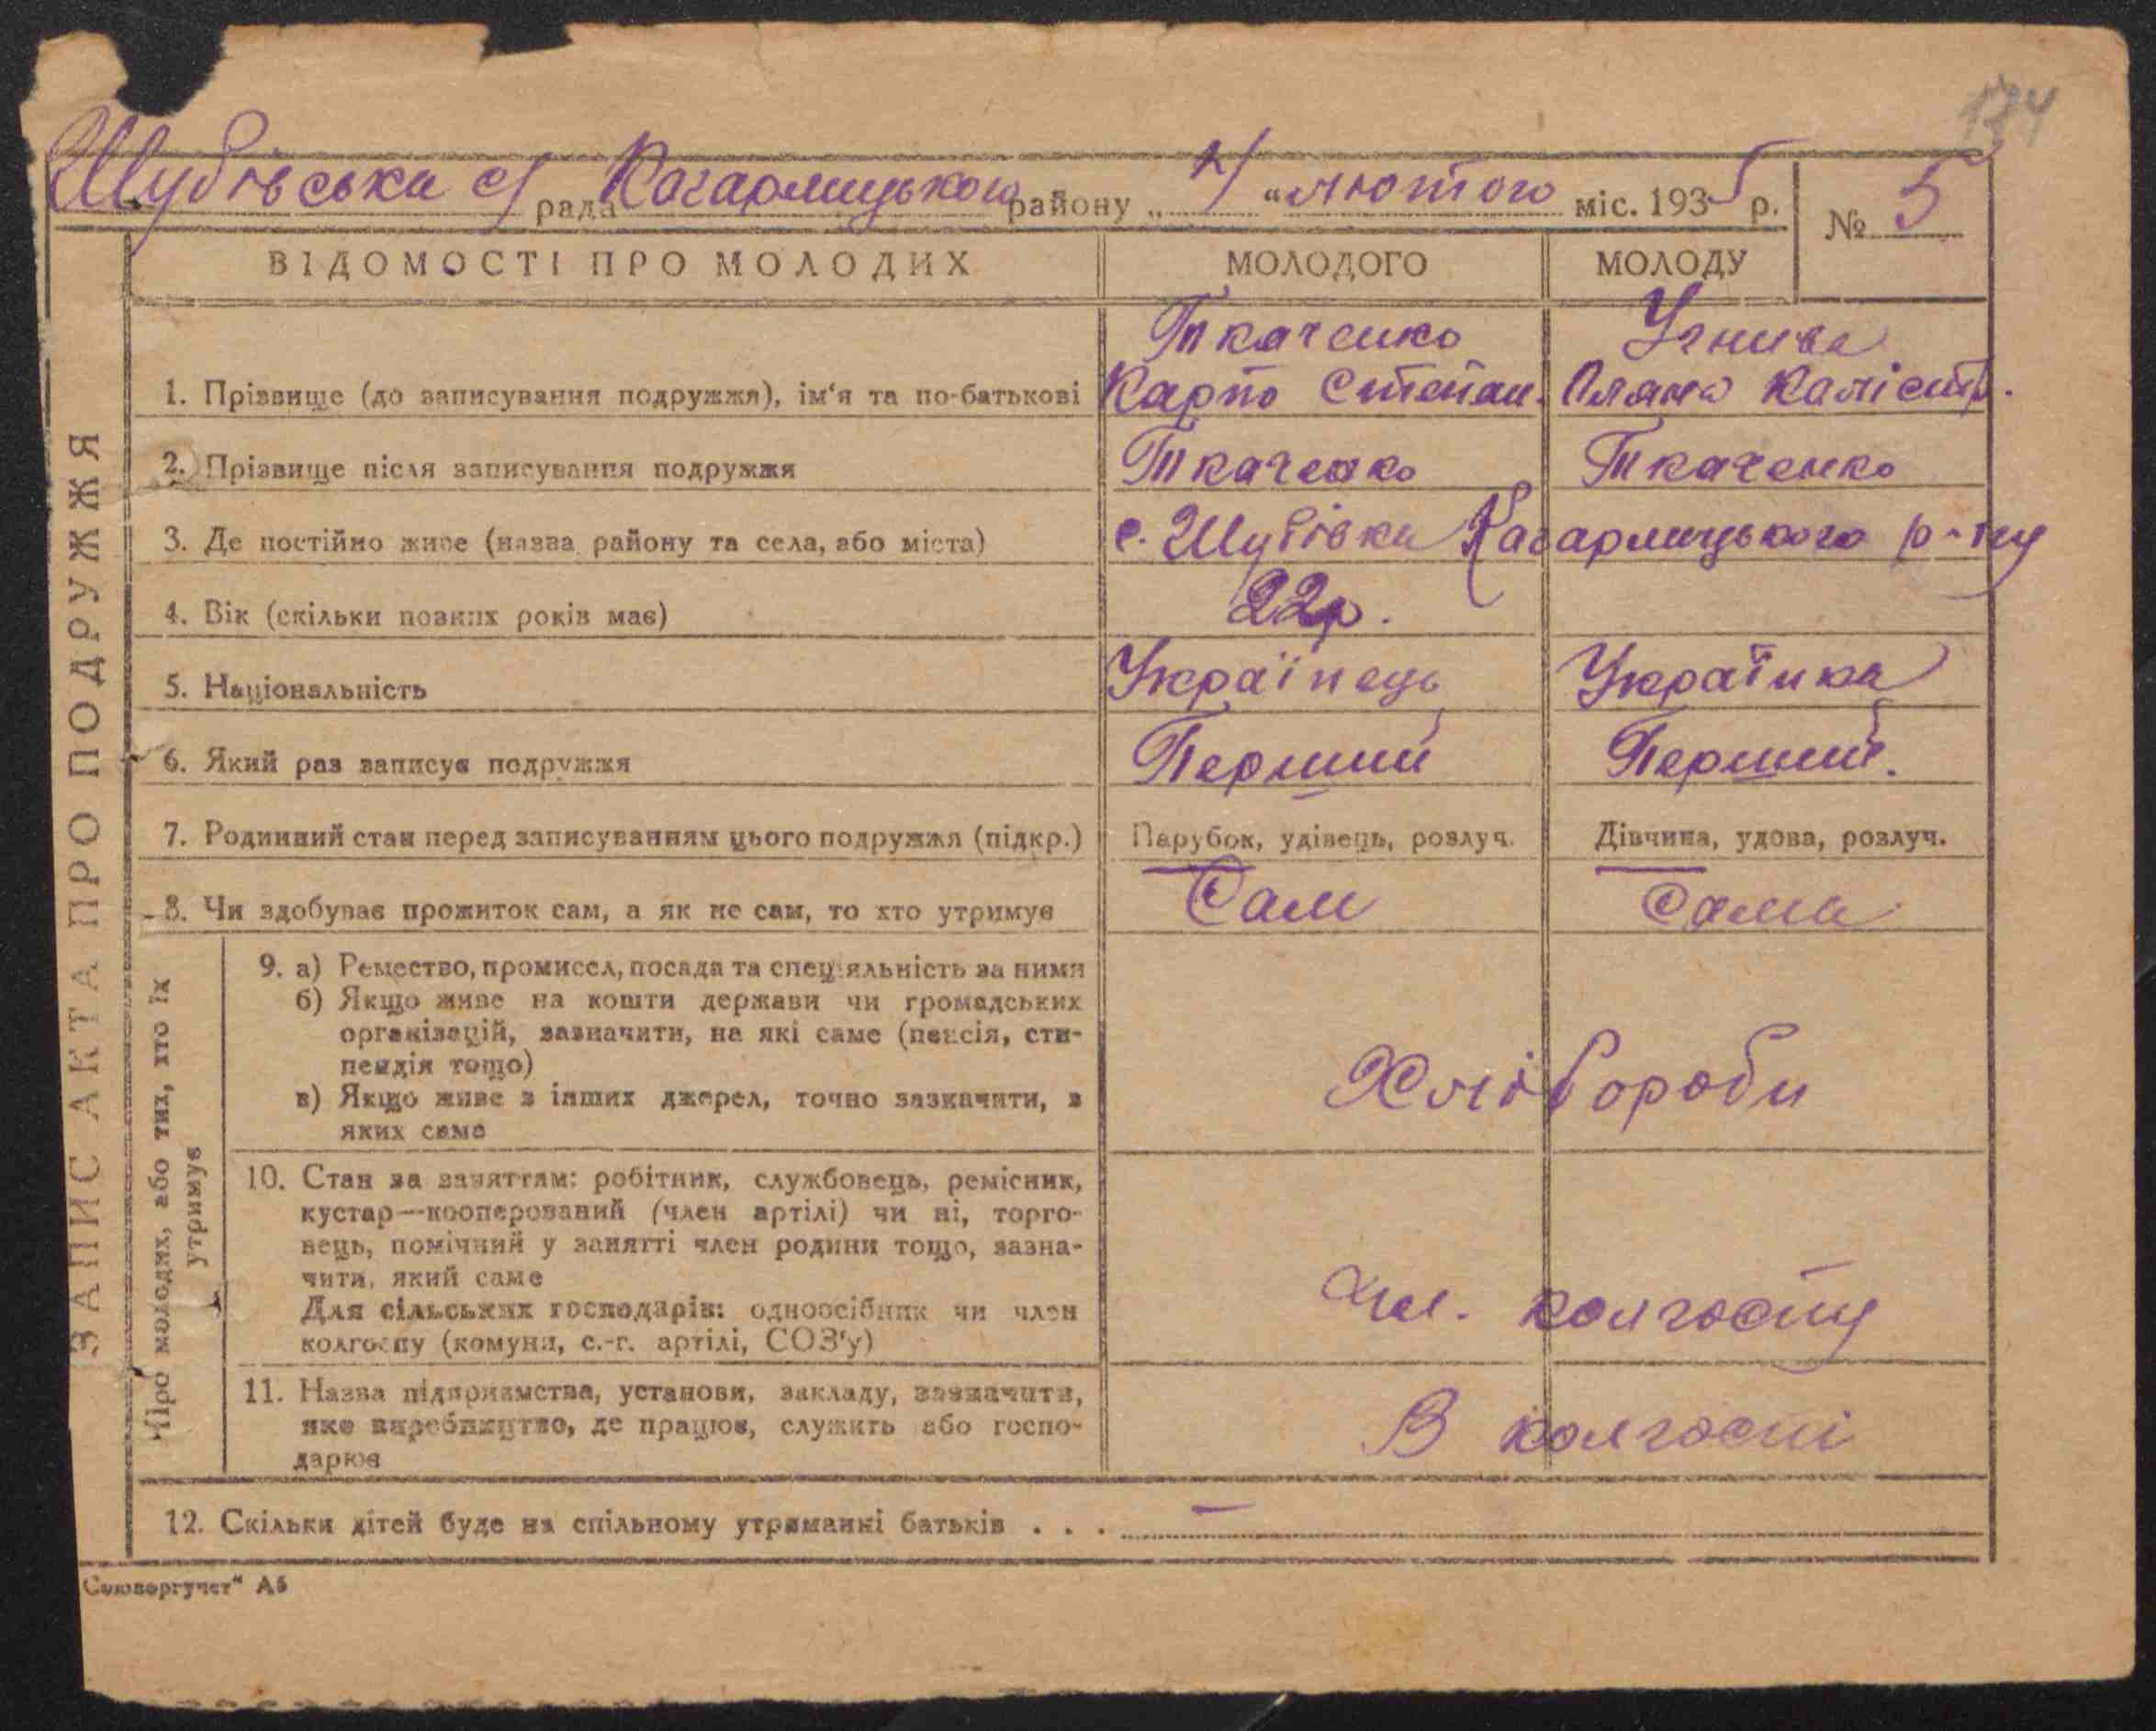 Шубівська с/рада Кагарлицького району „ 4 “ лютого міс. 1935 р. № 5
ВІДОМОСТІ ПРО МОЛОДИХ МОЛОДОГО МОЛОДУ
ЗАПИС АКТА ПРО ПОДРУЖЖЯ
Ткаченко
1. Прізвище (до записування подружжя), ім'я та по-батькові Карпо Степан. Калістр.
2. Прізвище після записування подружжя Ткаченко Ткаченко
3. Де постійно живе (назва району та села, або міста) с. Шубівка Кагарлицького р-ну
4. Вік (скільки повних років має) 22р.
5. Національність Українець Українка
6. Який раз записує подружжя Перший Перший.
7. Родинний стан перед записуванням цього подружжя (підкр.) Парубок, удівець, розлуч. Дівчина, удова, розлуч.
8. Чи здобуває прожиток сам, а як не сам, то хто утримує Сам Сама
Про молодих, або тих, хто їх
утримує
9. а) Ремество, промисел, посада та спеціяльність за ними
б) Якщо живе на кошти держави чи громадських
організацій, зазначити, на які саме (пенсія, сти-
пендія тощо)
в) Якщо живе з інших джерел, точно зазначити, з
яких саме
Хлібороби
10. Стан за заняттям: робітник, службовець, ремісник,
кустар—кооперований (член артілі) чи ні, торго-
вець, помічний у занятті член родини тощо, зазна-
чити, який саме
Для сільських господарів: одноосібник чи член
колгоспу (комуни, с.-г. артілі, СОЗ'у)
Чл. колгоспу
11. Назва підприємства, установи, закладу, зазначити,
яке виробництво, де працює, служить або госпо-
дарює
В колгоспі
12. Скільки дітей буде на спільному утриманні батьків . . . —
Союзоргучет" Аб